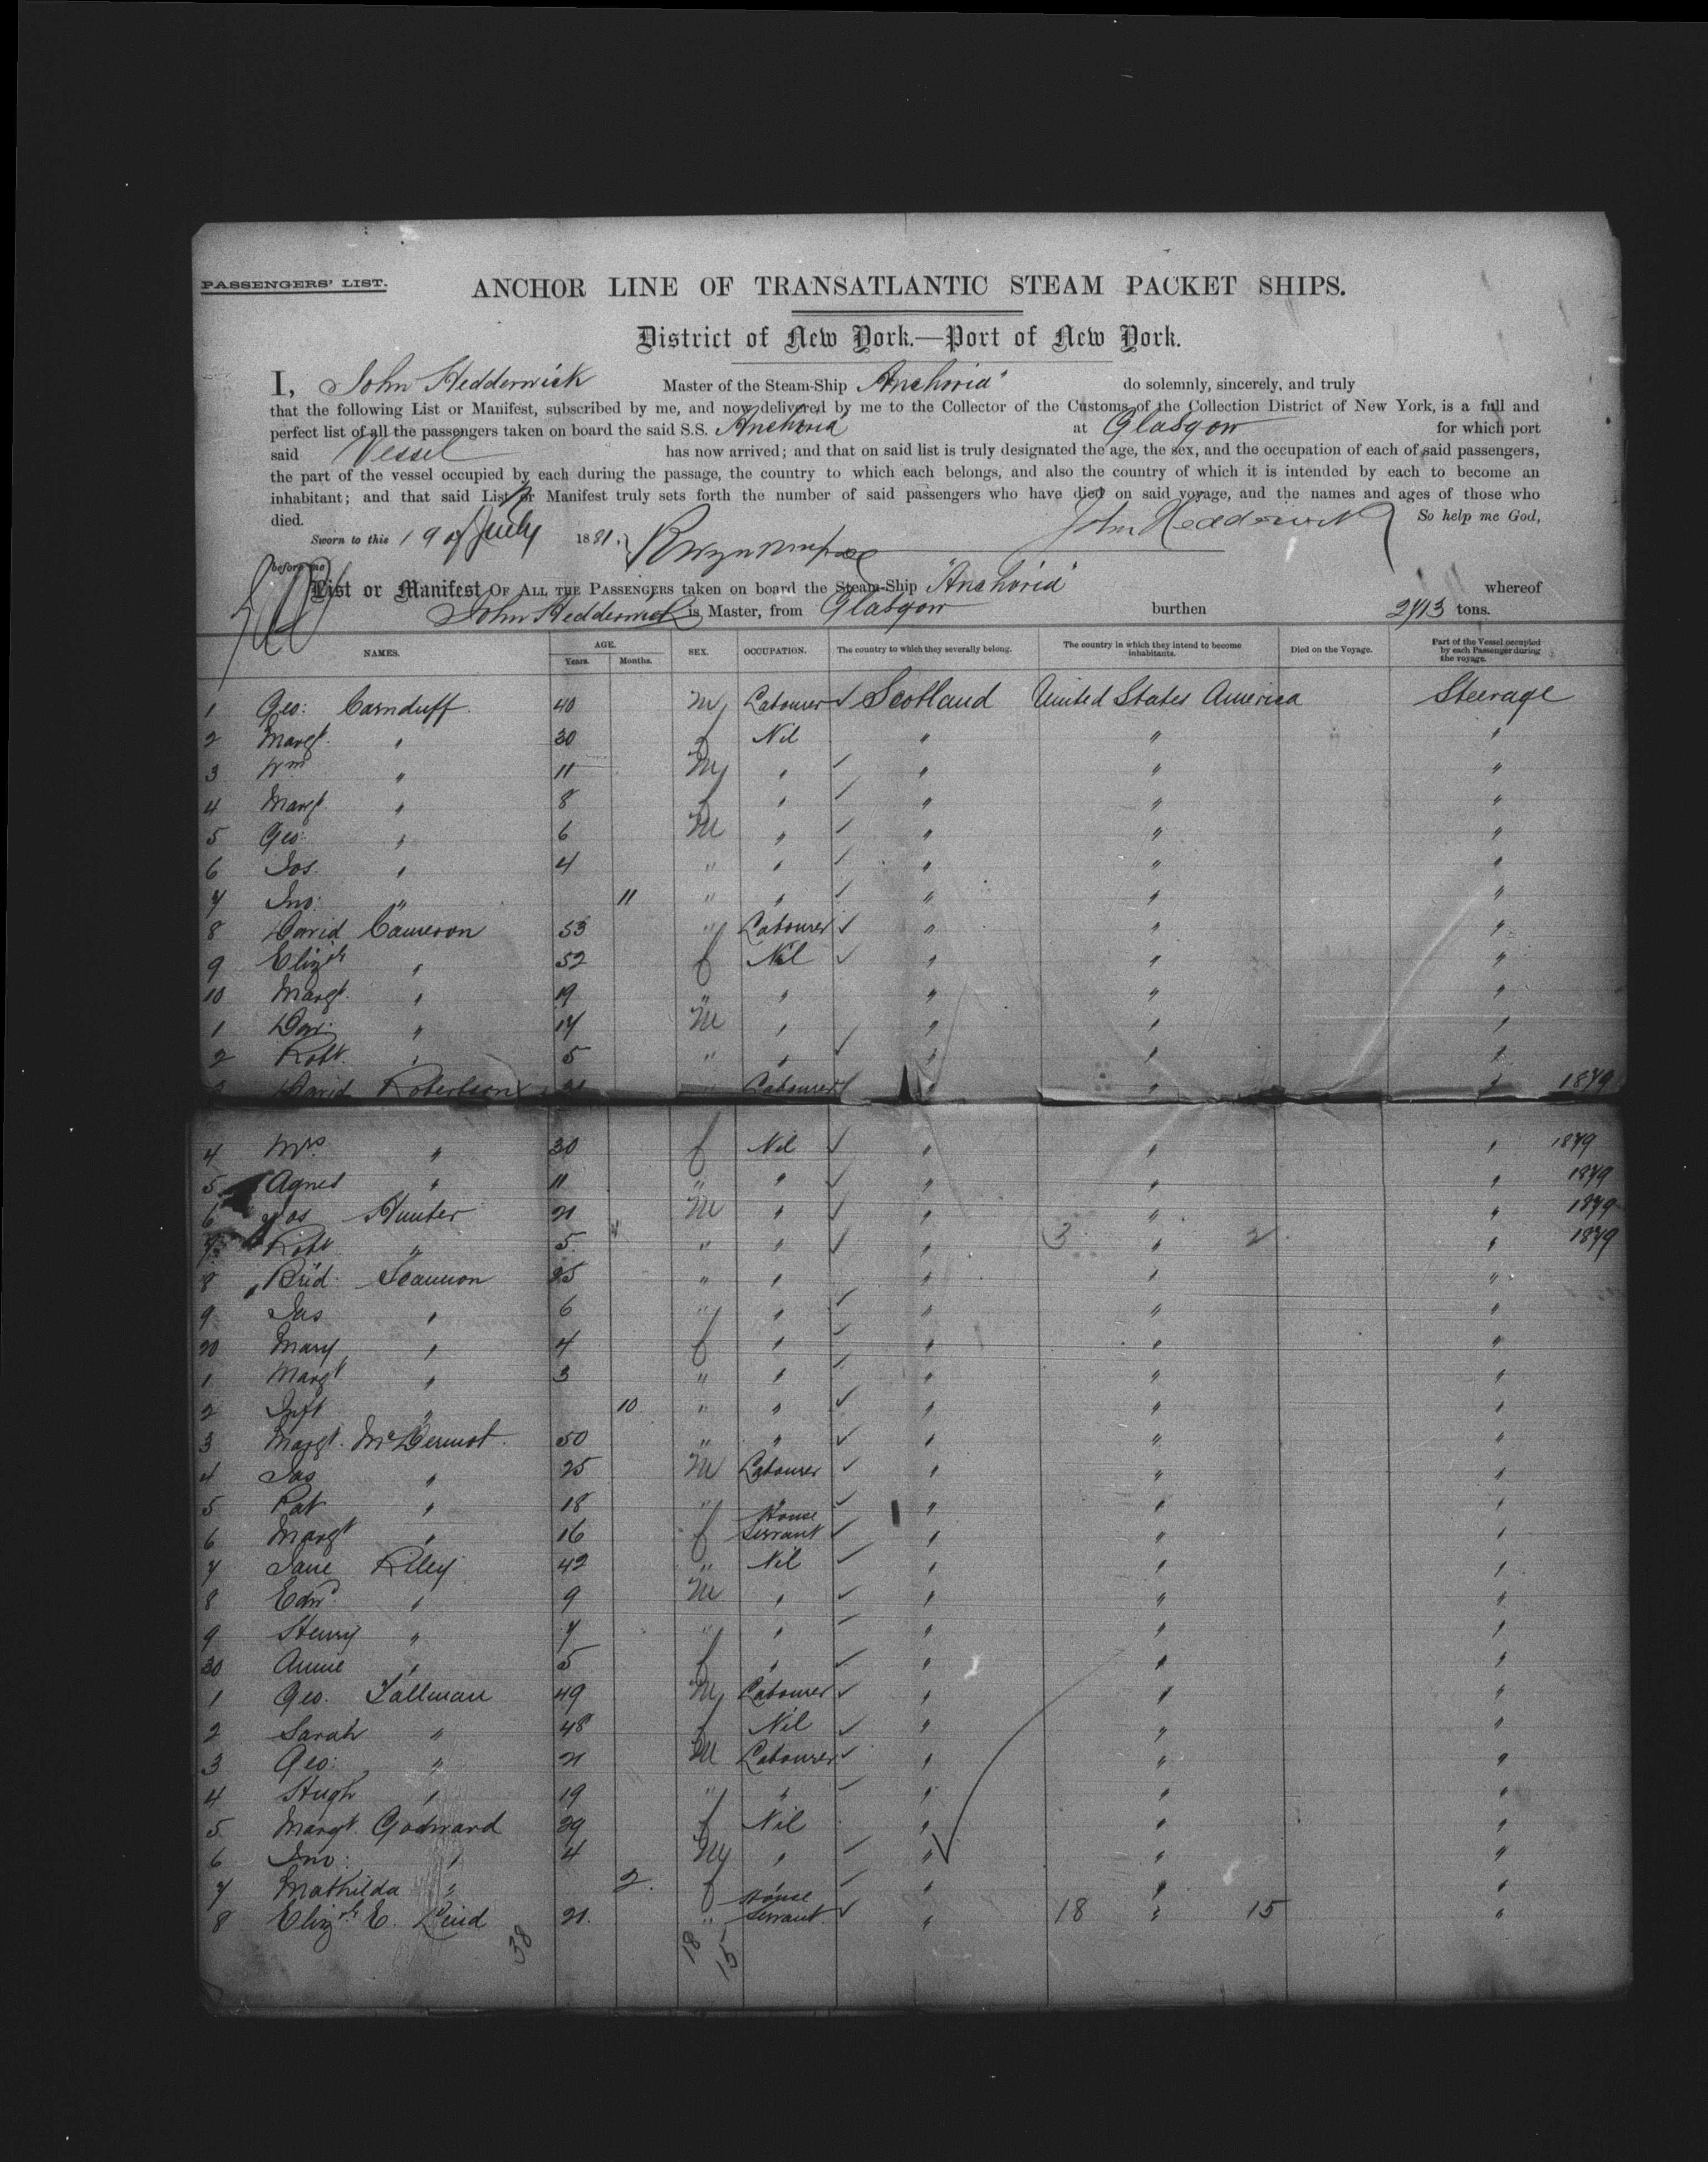 PASSENGERS' LIST.
ANCHOR LINE OF TRANSATLANTIC STEAM PACKET SHIPS.
District of New York.—Port of New York.
I, John Hedderwick Master of the Steam-Ship "Anchoria" do solemnly, sincerely, and truly
that the following List or Manifest, subscribed by me, and now delivered by me to the Collector of the Customs of the Collection District of New York, is a full and
perfect list of all the passengers taken on board the said S.S. Anchoria at Glasgow for which port
said Vessel has now arrived; and that on said list is truly designated the age, the sex, and the occupation of each of said passengers,
the part of the vessel occupied by each during the passage, the country to which each belongs, and also the country of which it is intended by each to become an
inhabitant; and that said List or Manifest truly sets forth the number of said passengers who have died on said voyage, and the names and ages of those who
died. So help me God,
Sworn to this 19 of July 1881. John Hedderwick
before me
List or Manifest OF ALL THE PASSENGERS taken on board the Steam-Ship "Anchoria" whereof
John Hedderwick is Master, from Glasgow burthen 2713 tons.
NAMES. AGE. Years. Months. SEX. OCCUPATION. The country to which they severally belong. The country in which they intend to become inhabitants. Died on the Voyage. Part of the Vessel occupied by each Passenger during the voyage.
1 Geo: Carnduff 40 M Labourer ✓ Scotland United States America Steerage
2 Margt. " 30 f Nil " " "
3 Wm " 11 M " ✓ " " "
4 Margt. " 8 f " ✓ " " "
5 Geo: " 6 M " ✓ " " "
6 Jos. " 4 " " ✓ " " "
7 Jno: " 11 " " ✓ " " "
8 David Cameron 53 " Labourer ✓ " " "
9 Elizth " 52 f Nil ✓ " " "
10 Margt. " 19 " " " " "
1 Dav: " 17 M " ✓ " " "
2 Robt. " 5 " " " " "
3 David Robertson " Labourer ✓ " " " 1879
4 Mrs. " 30 f Nil ✓ " " " 1879
5 Agnes " 11 " " ✓ " " " 1879
6 Jos Hunter 21 M " ✓ " " " 1879
7 Robt " 5 " " ✓ " 3 " 2 " 1879
8 Brid. Scannon 25 " " " " "
9 Jas " 6 " " ✓ " " "
20 Mary " 4 f " ✓ " " "
1 Margt " 3 " " ✓ " " "
2 Inft " 10 " " ✓ " " "
3 Margt. McDermot 50 " " ✓ " " "
4 Jas " 25 M Labourer ✓ " " "
5 Pat " 18 " " ✓ " " "
6 Margt " 16 f House Servant ✓ " " "
7 Jane Riley 42 " Nil ✓ " " "
8 Edwd " 9 M " ✓ " " "
9 Henry " 7 " " ✓ " " "
30 Annie " 5 f " ✓ " " "
1 Geo. Tallman 49 M Labourer ✓ " " "
2 Sarah " 48 f Nil ✓ " " "
3 Geo: " 21 M Labourer ✓ " " "
4 Hugh " 19 " " ✓ " " "
5 Margt. Godward 29 f Nil " " "
6 Jno: " 4 M " ✓ " " "
7 Mathilda " 2 f " ✓ " " "
8 Elizth E. 21. " House Servant ✓ " 18 " 15 "
38 18 15